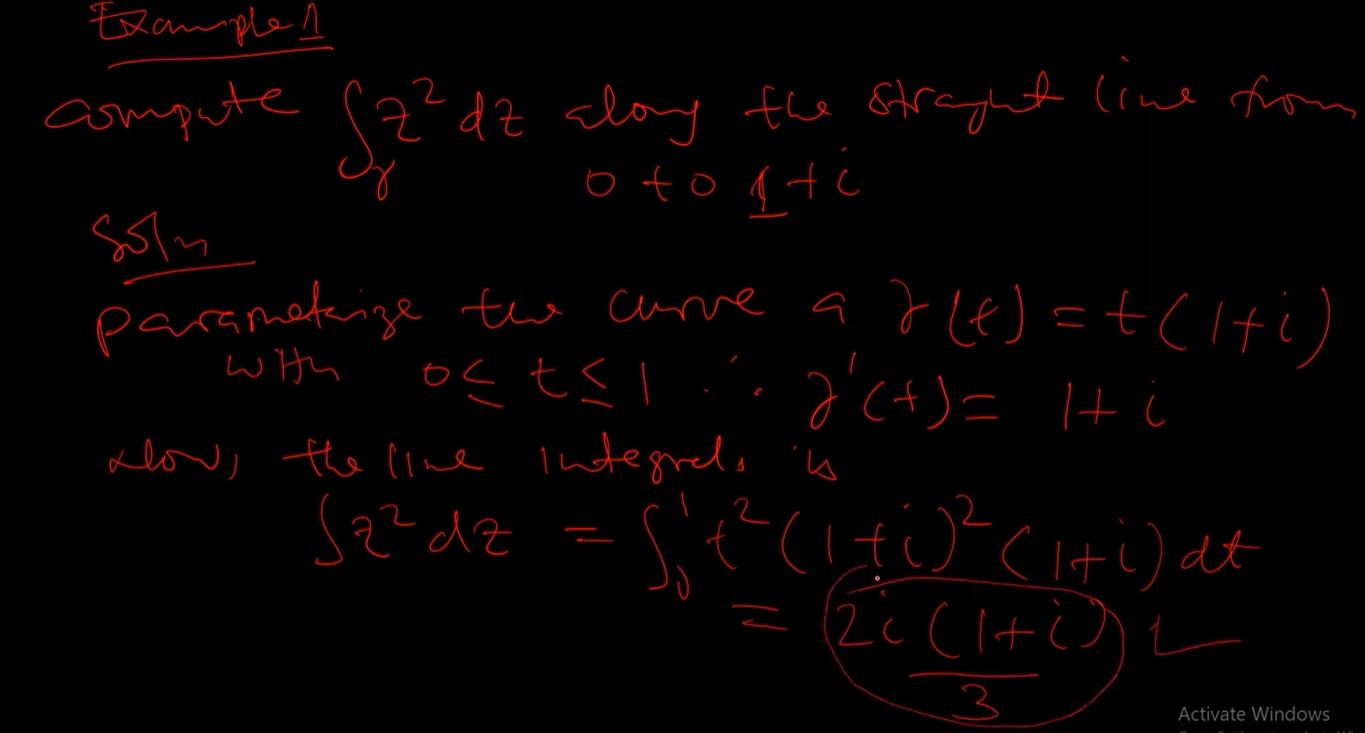 Example 1
compute ∫γ z² dz along the straight line from
0 to 1+i
Soln
parametrize the curve a γ(t) = t(1+i)
with 0 ≤ t ≤ 1 ∴ γ'(t) = 1+i
Now, the line integrals is
∫z² dz = ∫₀¹ t² (1+i)² (1+i) dt
= 2i(1+i)/3
Activate Windows